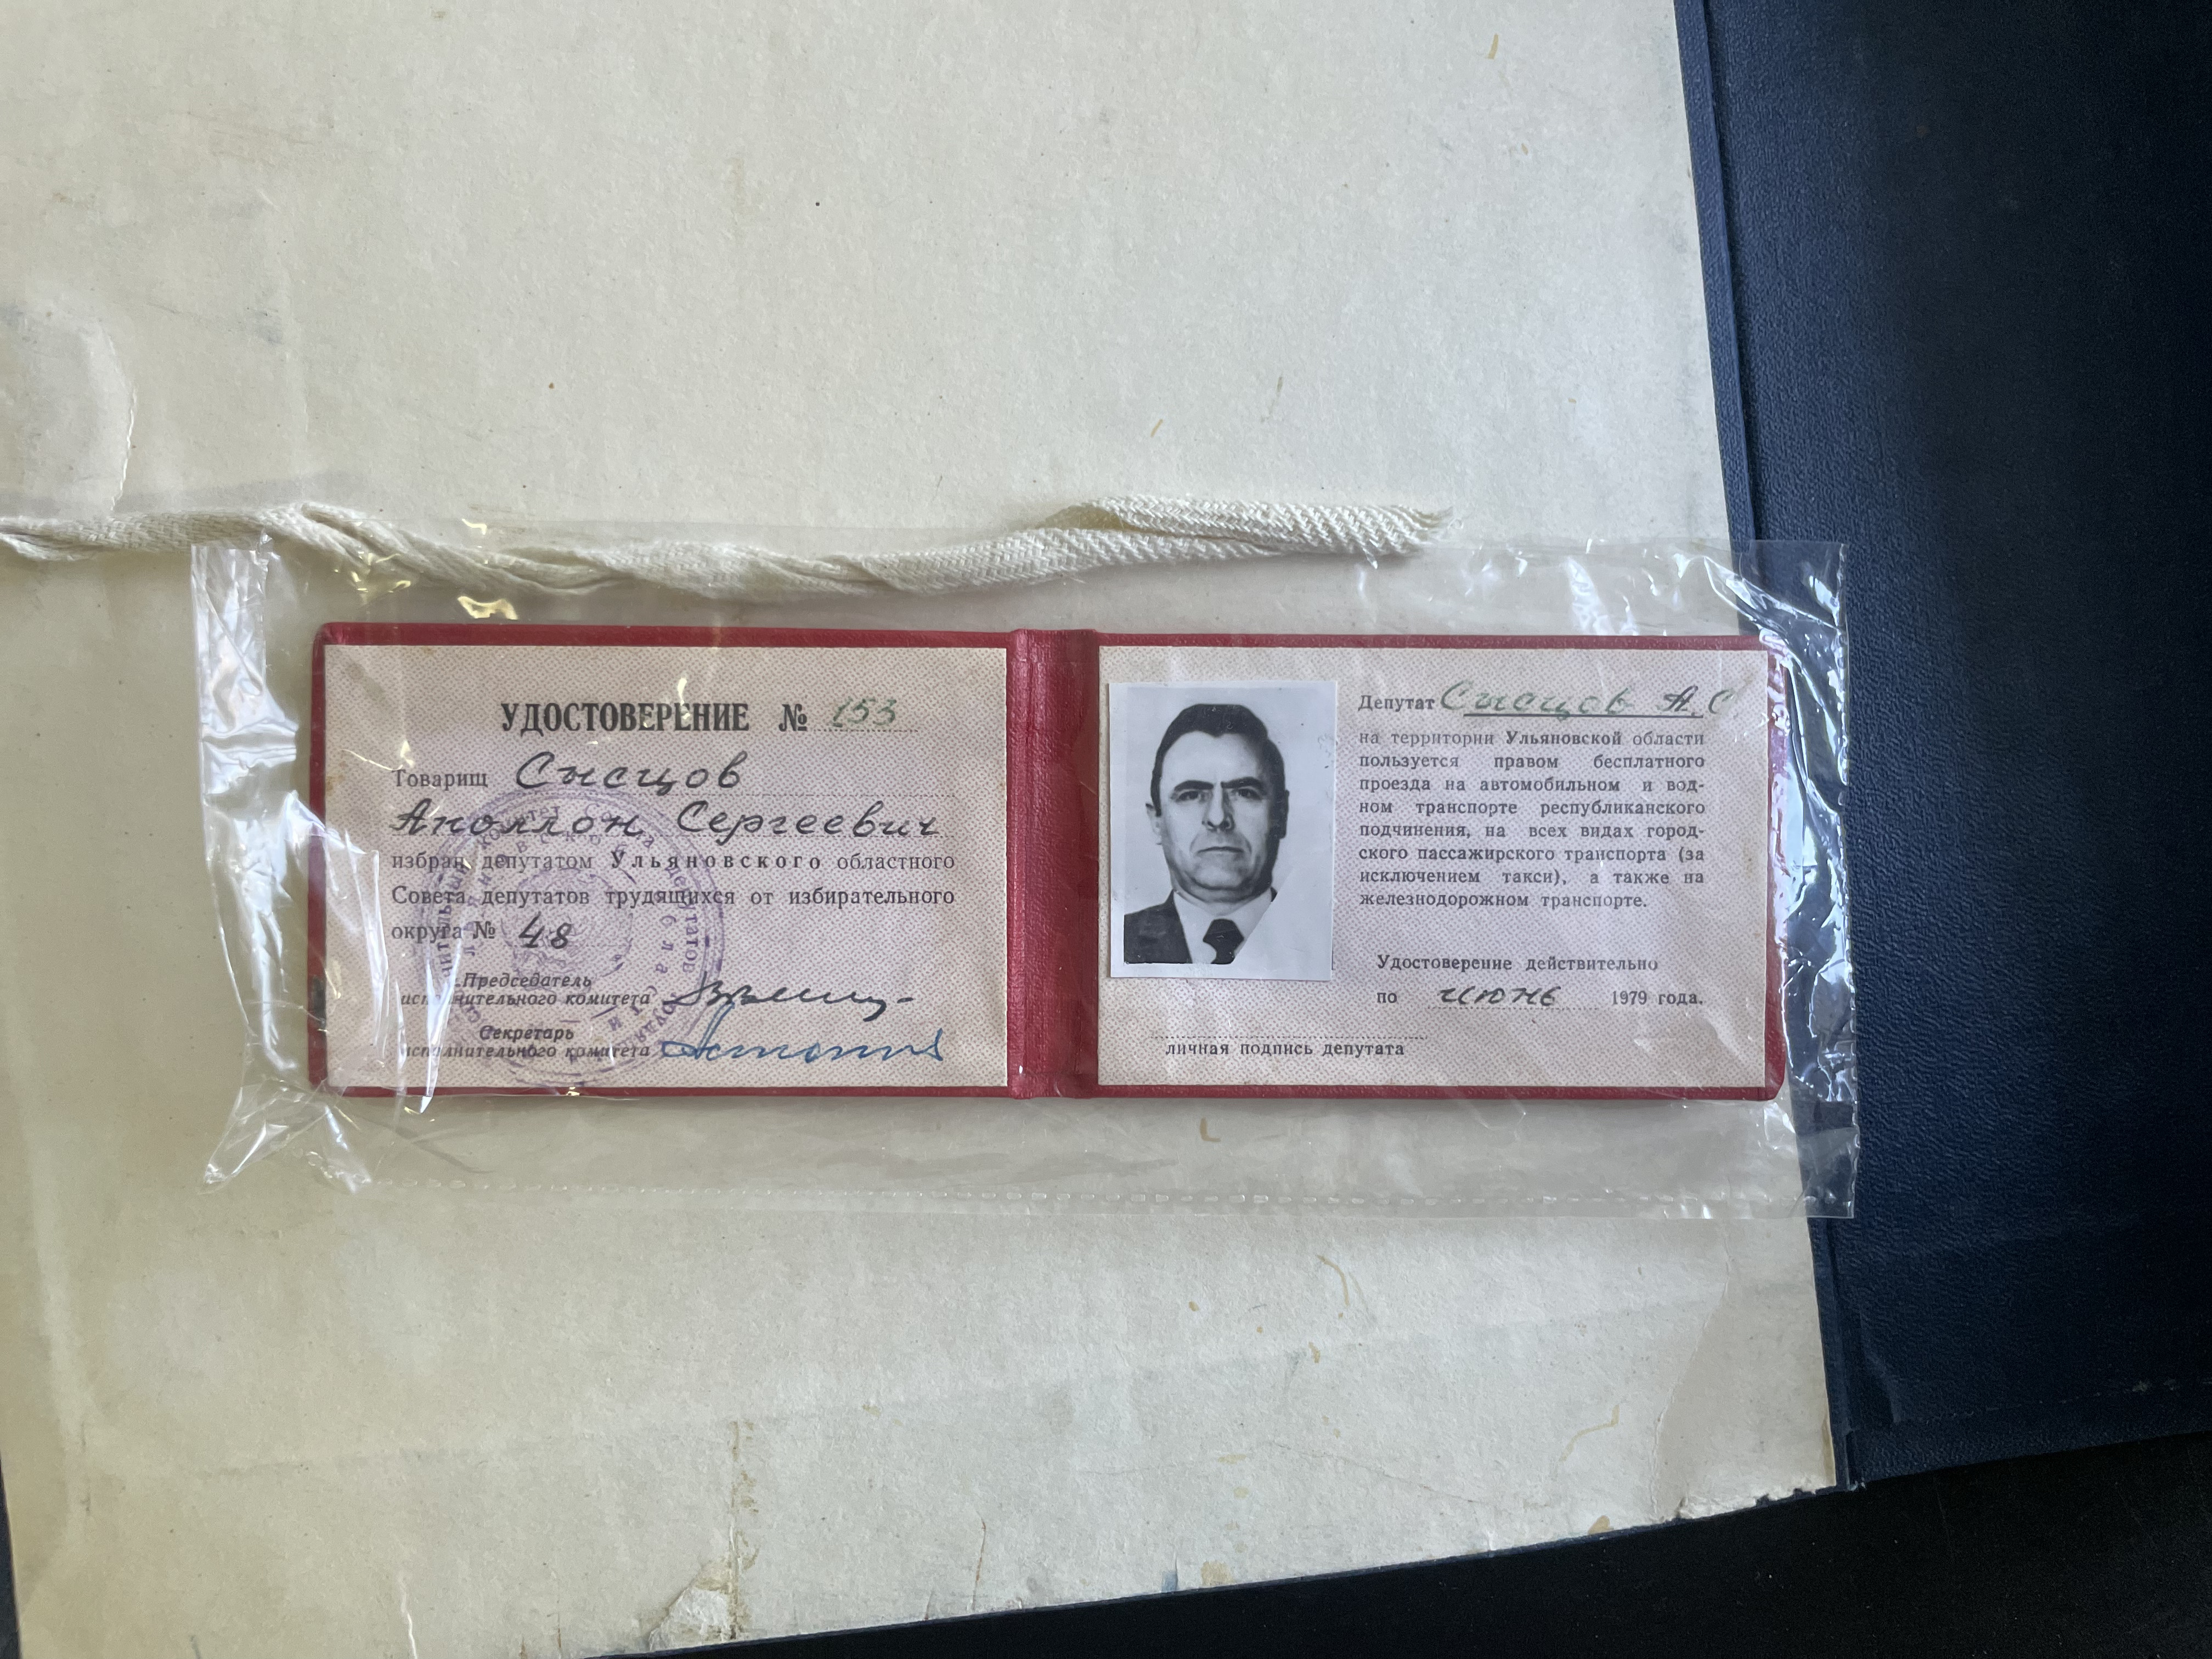 УДОСТОВЕРЕНИЕ № 153
Товарищ Сысцов
Аполлон Сергеевич
избран депутатом Ульяновского областного
Совета депутатов трудящихся от избирательного
округа № 48
Председатель
исполнительного комитета
Секретарь
исполнительного комитета
Депутат Сысцов А.С.
на территории Ульяновской области
пользуется правом бесплатного
проезда на автомобильном и вод-
ном транспорте республиканского
подчинения, на всех видах город-
ского пассажирского транспорта (за
исключением такси), а также на
железнодорожном транспорте.
Удостоверение действительно
по июнь 1979 года.
личная подпись депутата